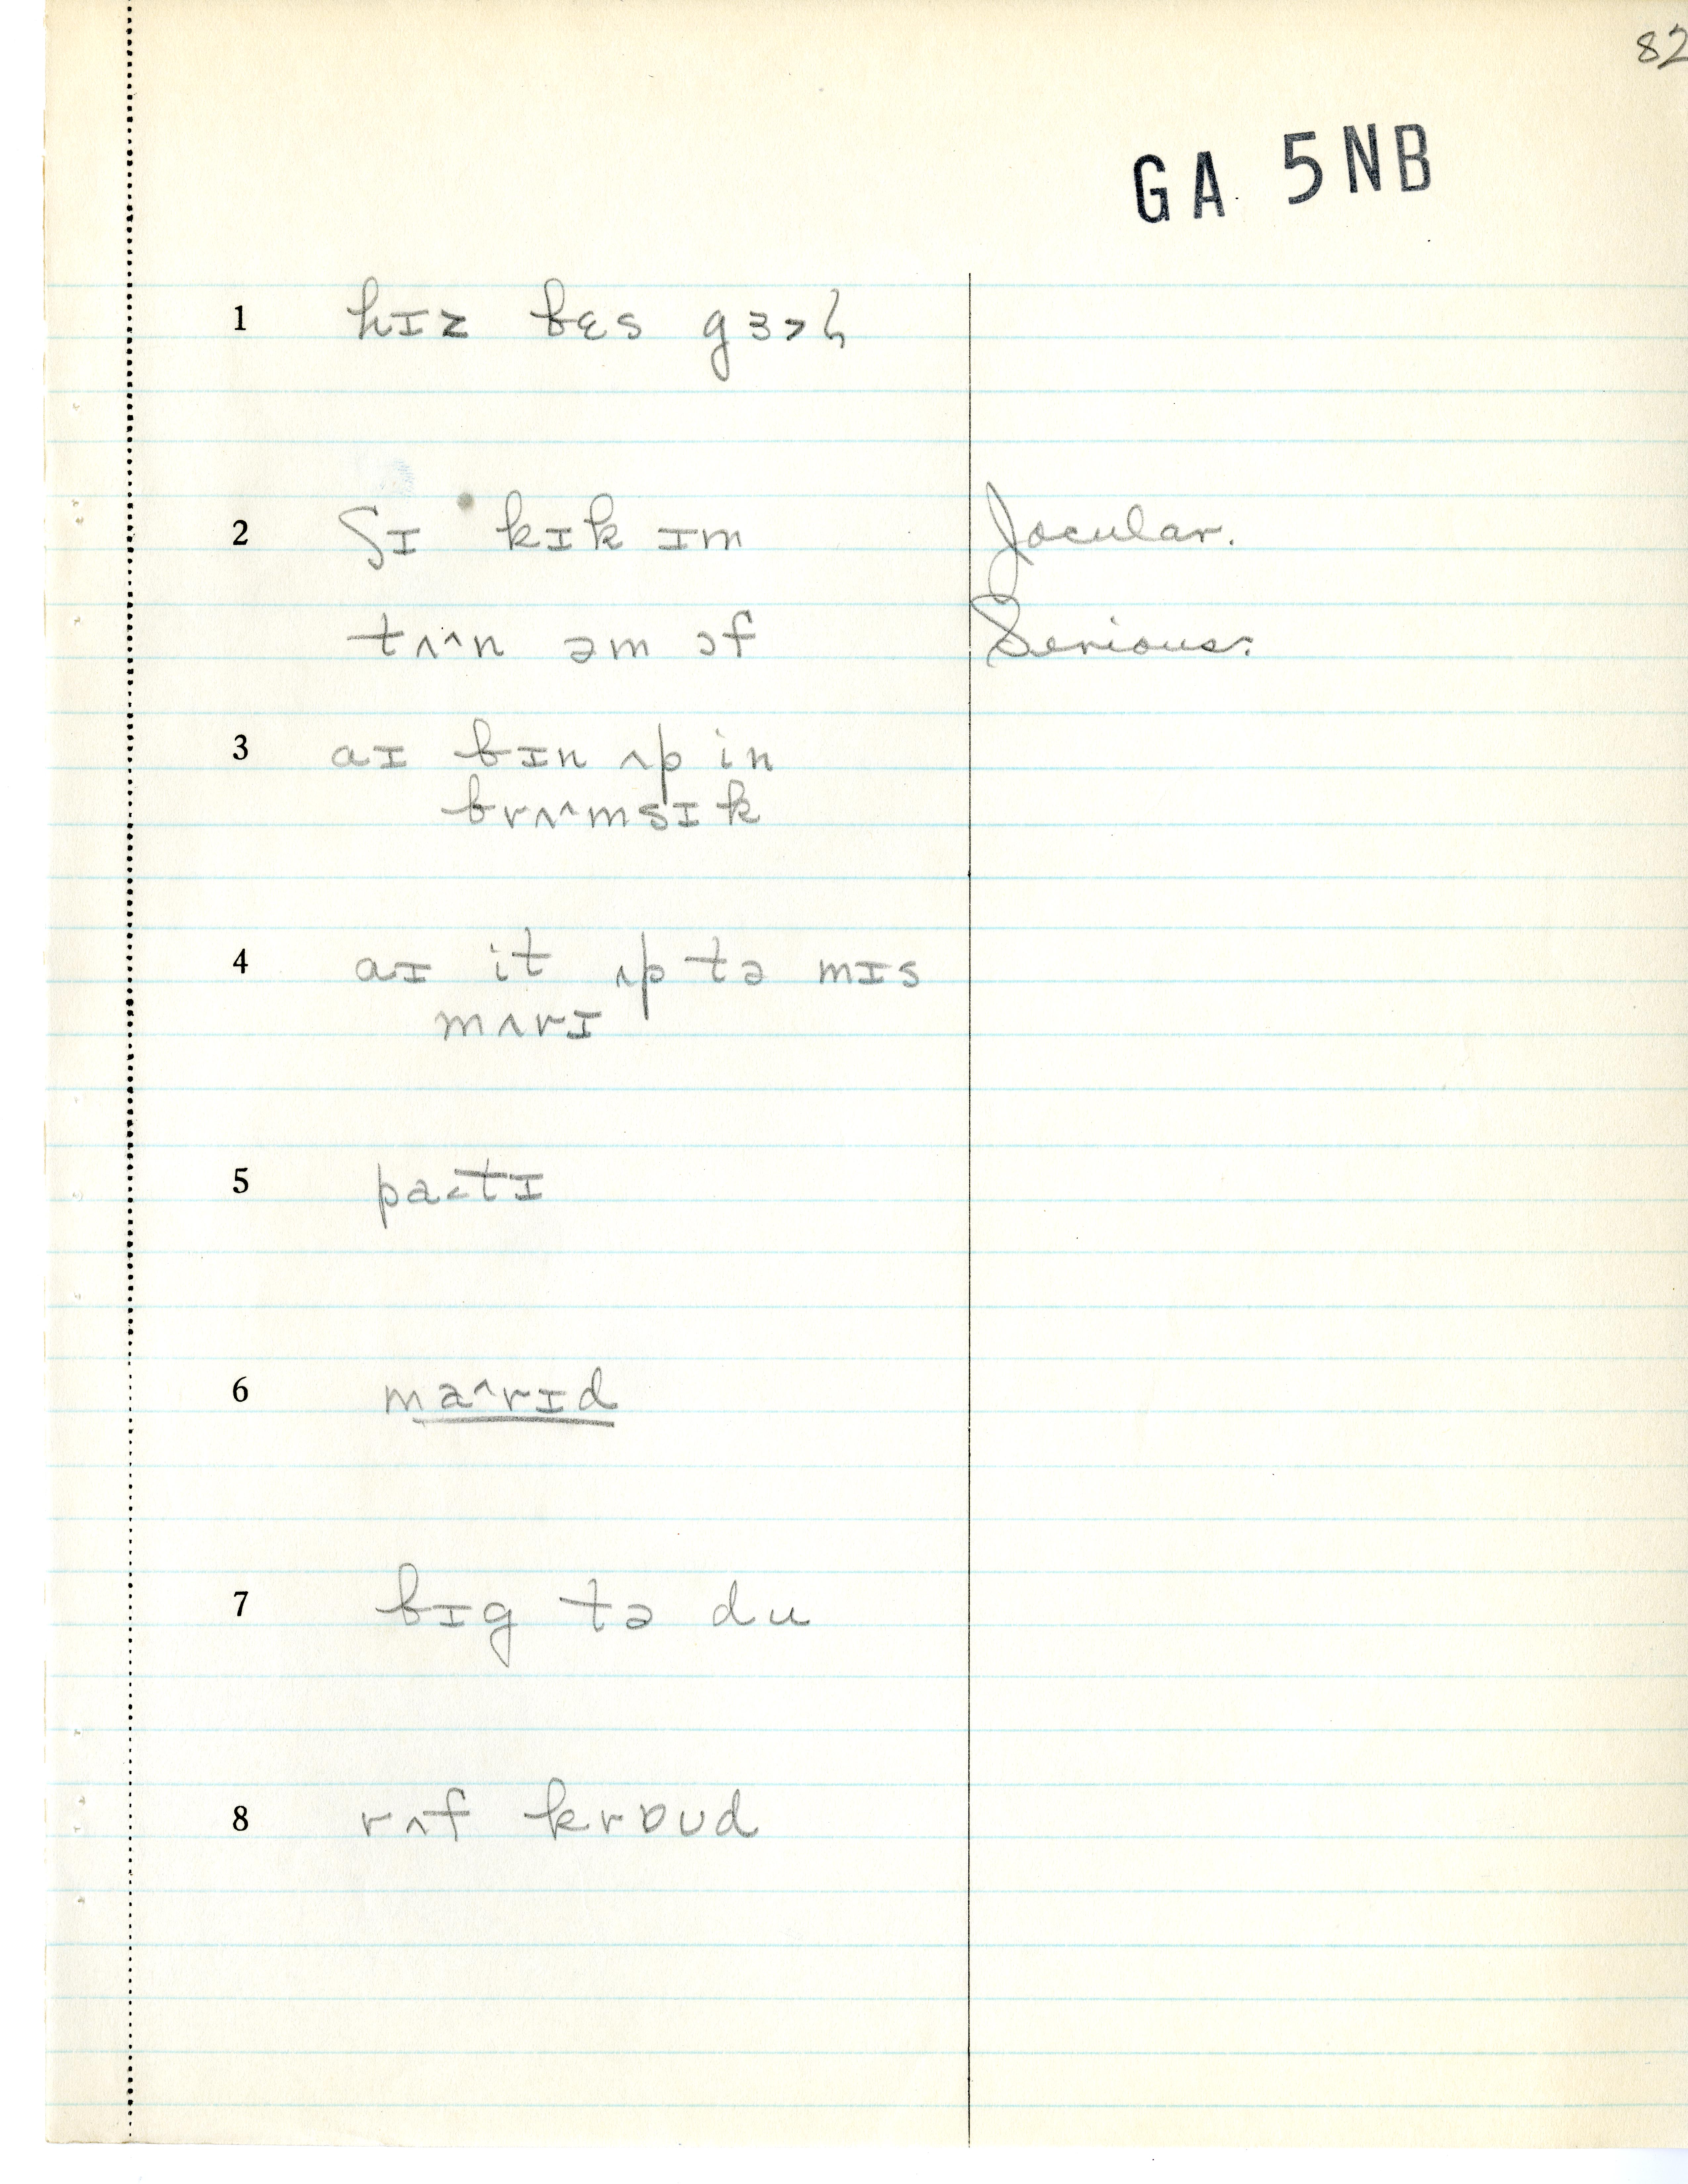 82
GA 5NB
1 hɪz bɛs gɜ>ɫ
2 ʃɪ kɪk ɪm Jocular.
tʌ^n əm ɔf Serious.
3 aɪ bɪn ʌp in
brʌ^msɪk
4 aɪ it ʌp tə mɪs
mʌrɪ
5 pa<tɪ
6 ma^rɪd
7 bɪg tə du
8 rʌf krɒʊd